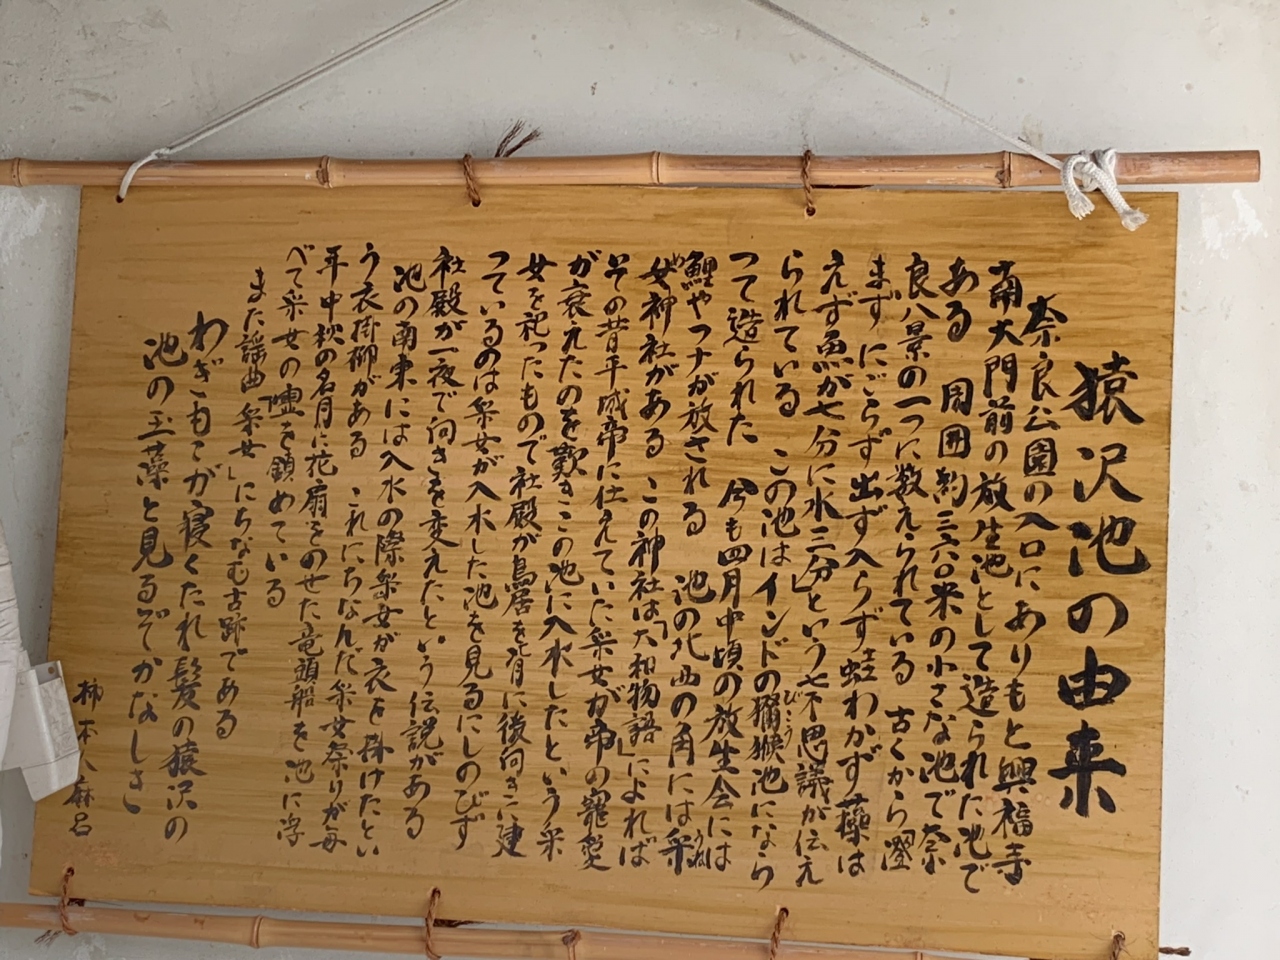 猿沢池の由来
奈良公園の入口にありもと興福寺
南大門前の放生池として造られた池で
ある 周囲約三六〇米の小さな池で奈
良八景の一つに数えられている 古くから澄
まずにごらず出ず入らず蛙わかず藻は
えず魚が七分に水三分」という七不思議が伝え
られている この池はインドの獼猴池になら
びこう
つて造られた 今も四月中頃の放生会には
鯉やフナが放される 池の北西の角には采
うね
女神社がある この神社は「大和物語」によれば
め
その昔平城帝に仕えていた采女が帝の寵愛
が衰えたのを歎きこの池に入水したという采
女を祀ったもので社殿が鳥居を背に後向きに建
つているのは采女が入水した池を見るにしのびず
社殿が一夜で向きを変えたという伝説がある
池の南東には入水の際采女が衣を掛けたとい
う衣掛柳がある これにちなんだ采女祭りが毎
年中秋の名月に花扇をのせた竜頭船を池に浮
べて采女の霊を鎮めている
また謡曲「采女」にちなむ古跡である
わぎもこが寝くたれ髪の猿沢の
池の玉藻と見るぞかなしき
柿本人麻呂